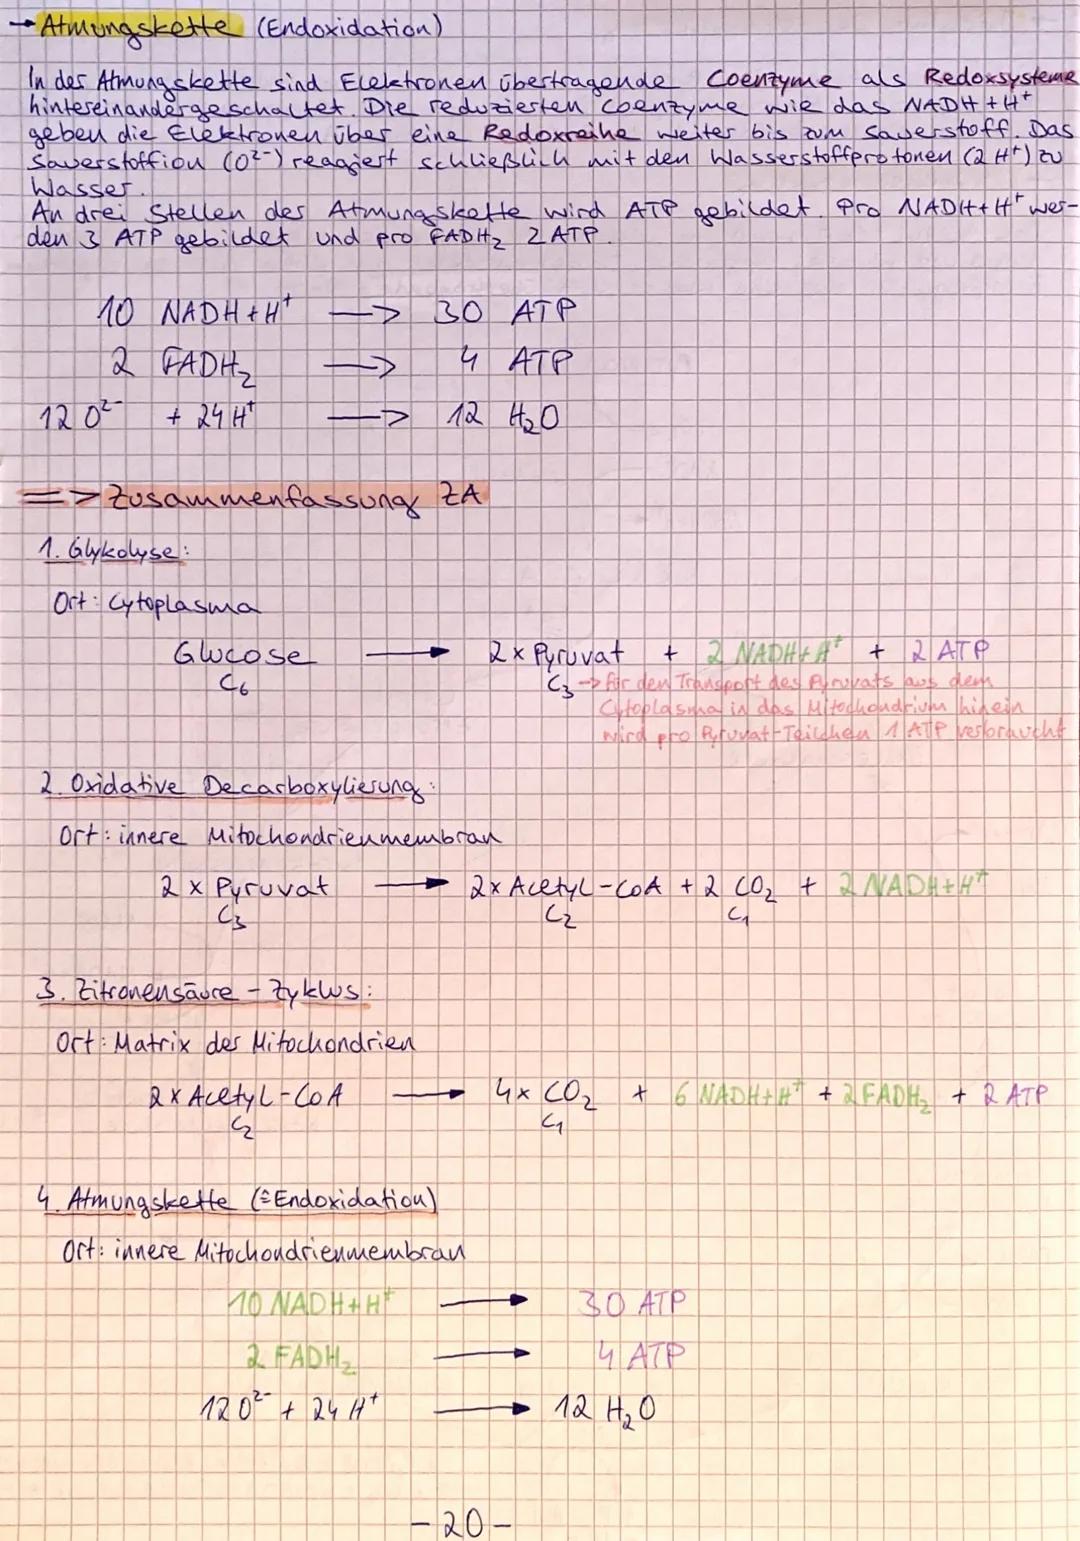 → Atmungskette (Endoxidation)
In der Atmungskette sind Elektronen übertragende Coenzyme als Redoxsysteme
hintereinandergeschaltet. Die reduzierten Coenzyme wie das NADH+H⁺
geben die Elektronen über eine Redoxreihe weiter bis zum Sauerstoff. Das
Sauerstoffion (O²⁻) reagiert schließlich mit den Wasserstoffprotonen (2 H⁺) zu
Wasser.
An drei Stellen der Atmungskette wird ATP gebildet. Pro NADH+H⁺ wer-
den 3 ATP gebildet und pro FADH₂ 2 ATP.
10 NADH+H⁺ —> 30 ATP
2 FADH₂ —> 4 ATP
12 O²⁻ + 24 H⁺ —> 12 H₂O
=> Zusammenfassung ZA
1. Glykolyse:
Ort: Cytoplasma
Glucose → 2x Pyruvat + 2 NADH+H⁺ + 2 ATP
C₆ C₃ → für den Transport des Pyruvats aus dem
Cytoplasma in das Mitochondrium hinein
wird pro Pyruvat-Teilchen 1 ATP verbraucht
2. Oxidative Decarboxylierung:
Ort: innere Mitochondrienmembran
2 x Pyruvat → 2x Acetyl-CoA + 2 CO₂ + 2 NADH+H⁺
C₃ C₂ C₁
3. Zitronensäure - Zyklus:
Ort: Matrix der Mitochondrien
2x Acetyl-CoA → 4x CO₂ + 6 NADH+H⁺ + 2 FADH₂ + 2 ATP
C₂ C₁
4. Atmungskette (≙Endoxidation)
Ort: innere Mitochondrienmembran
10 NADH+H⁺ → 30 ATP
2 FADH₂ → 4 ATP
12 O²⁻ + 24 H⁺ → 12 H₂O
-20-